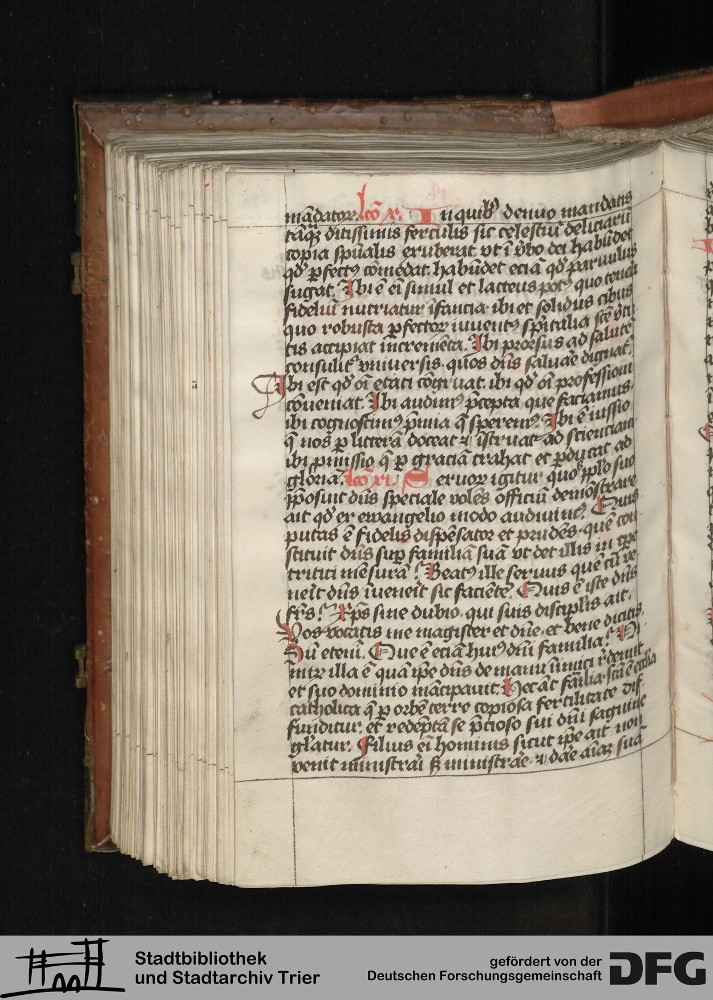 mādator. lcō x. In quib9 denuo mandatis
tāq3 ditissimis ferculis sic celestiū deliciarū
copia spūalis exuberat. vt ī v̄bo dei habūdet
qđ pfect9 cōmedat. habūdet eciā qđ paruulus
sugat. Ibi ē ei simul et lacteus pot9 quo tenera
fideliū nutriatur īfancia. ibi et solidus cibus
quo robusta pfectoꝝ iuuent9 spūitalia scē v̄tu
tis accipiat īcremēta. Ibi prorsus ad salutē
consulit͛ vniuersis. quos dn̄s saluare dignat͛.
Ibi est qđ oī etati cōgruat. ibi qđ oī professioni
cōueniat. Ibi audim9 p̄cepta que faciamus.
ibi cognoscim9 p̄mia q̄ sperem9. Ibi ē iussio
q̄ nos p litterā doceat et īstruat ad scienciam
ibi p̄missio q̄ p graciā trahat et pducat ad
gloriā. lcō xi. Seruoꝝ igitur quos pplo suo
p̄posuit dn̄s speciale volēs officiū demōstrare
ait qđ ex ewangelio modo audiuim9. Quis
putas ē fidelis dispēsator et prudēs. quē con
stituit dn̄s sup familiā suā vt det illis in tpe
tritici mēsurā? Beat9 ille seruus que cū ve
neīt dn̄s īueneīt sic faciētē. Quis ē iste dn̄s
frēs? Xp̄s sine dubio. qui suis discipłis ait.
Vos vocatis me magister et dn̄e. et bene dicitis.
Sū etenī. Que ē eciā hui9 dn̄i familia? Ni
mir illa ē quā ipe dn̄s de manu īimici redemit
et suo dominio mācipauit. Hec aūt fāilia. scā ē ecclīa
catholica q̄ p orbē terre copiosa fertilitate dif
funditur. et redēptā se p̄cioso sui dn̄i sāguine
glātur. Filius ei hominis sicut ipe ait non
venit ministrari sꝫ ministrāe. et dāe aīaꝫ suā
Stadtbibliothek
und Stadtarchiv Trier
gefördert von der
Deutschen Forschungsgemeinschaft DFG